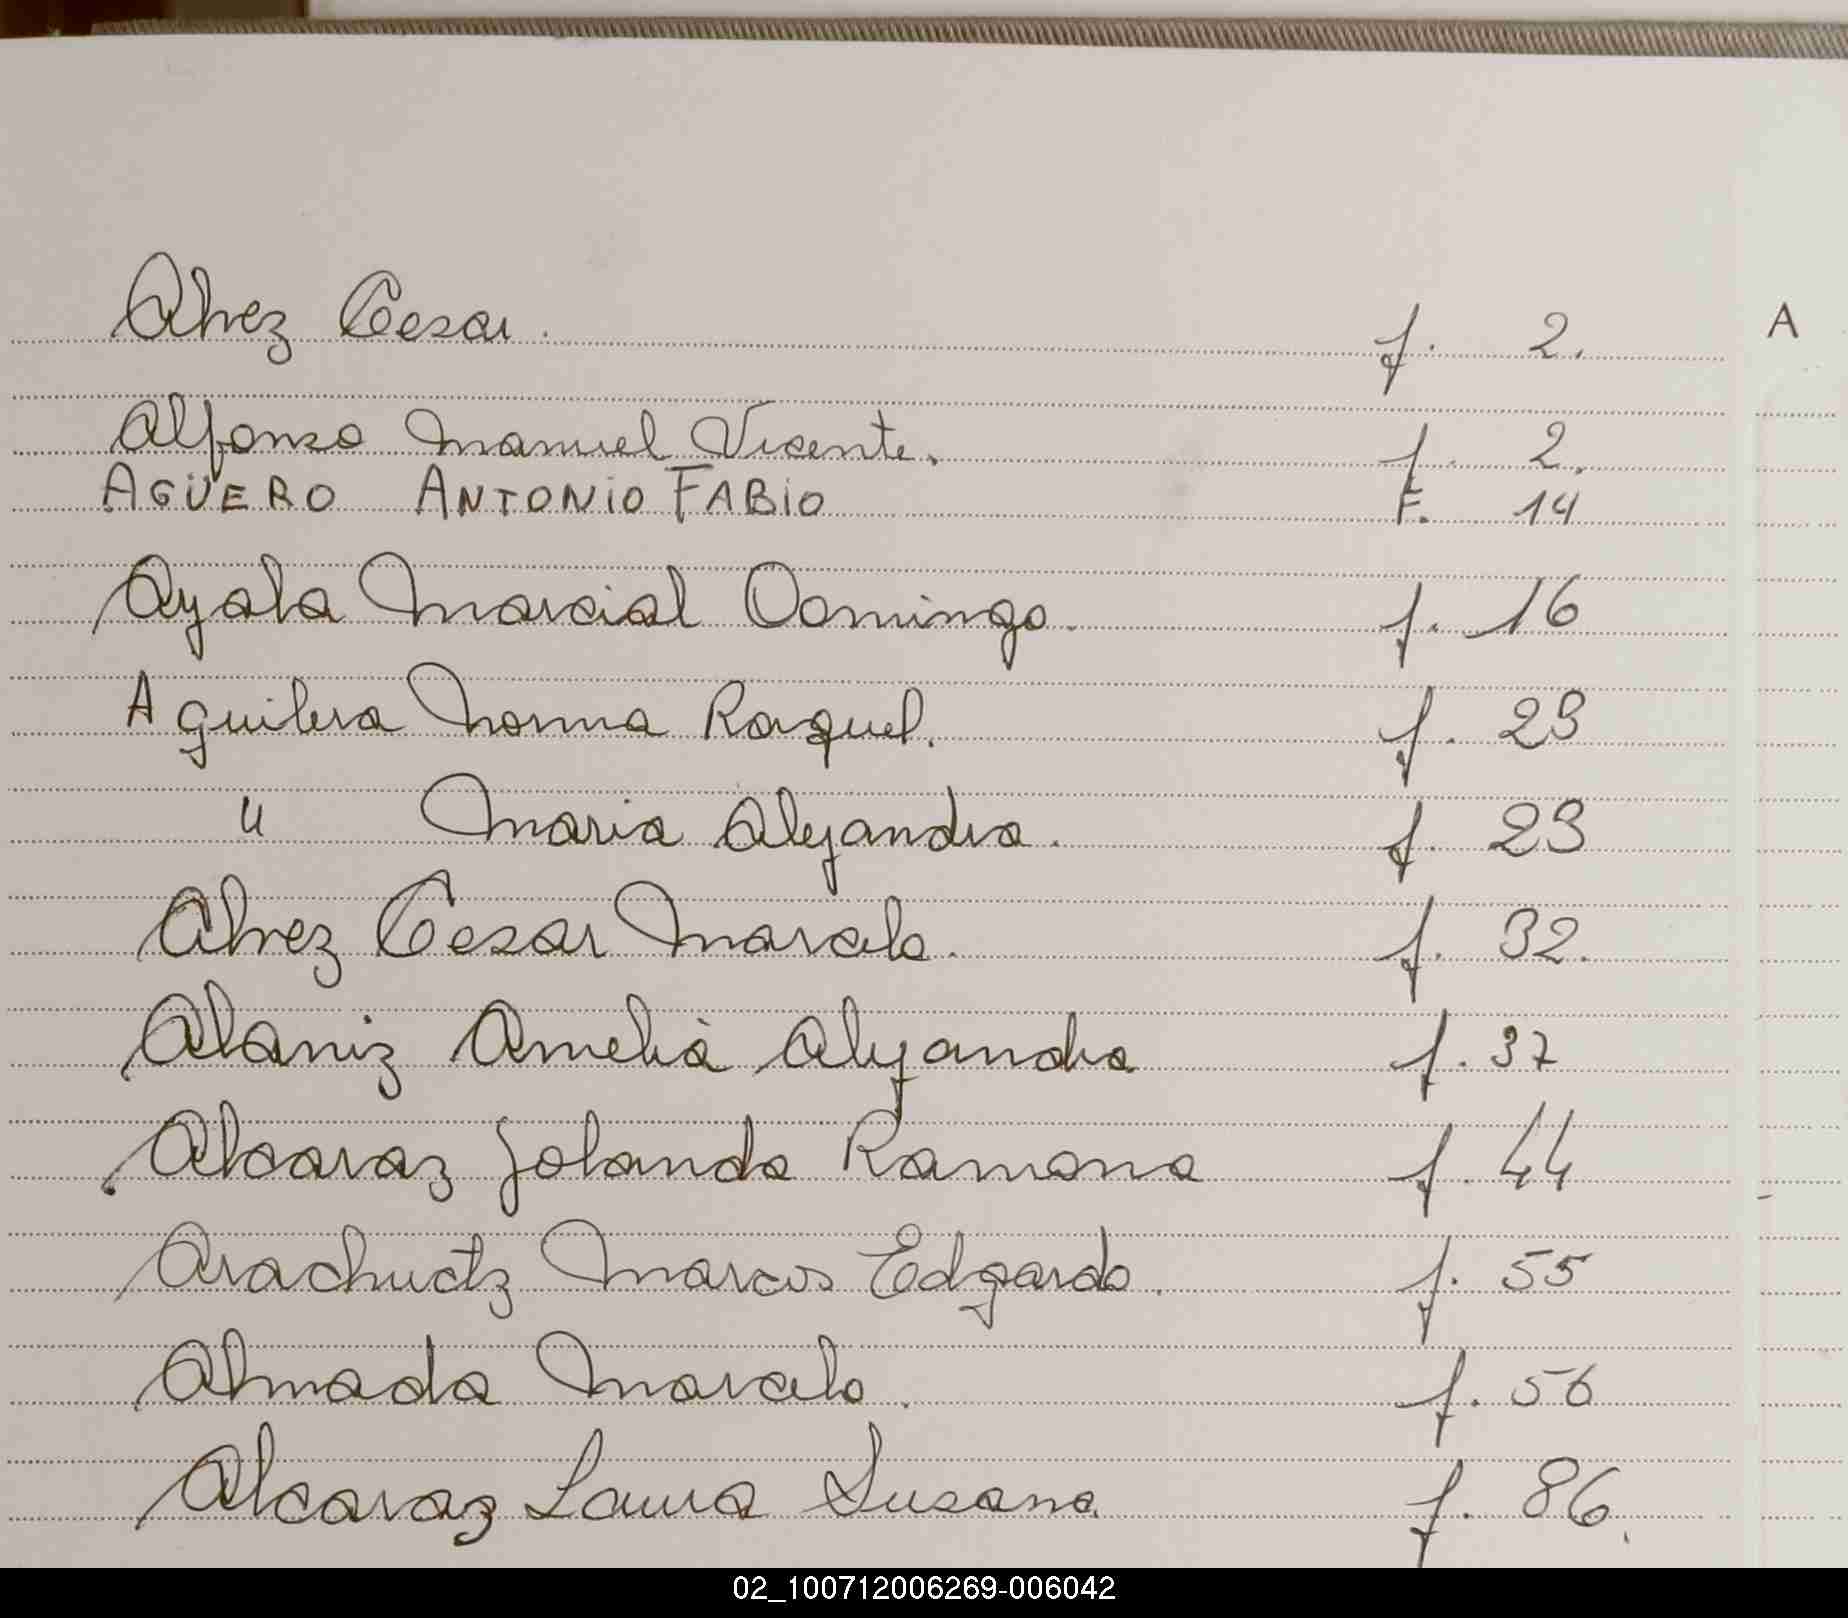 Alvez Cesar. f. 2. A
Alfonso Manuel Vicente. f. 2.
AGÜERO ANTONIO FABIO F. 14
Ayala Marcial Domingo. f. 16
Aguilera Norma Raquel. f. 23
" Maria Alejandra. f. 23
Alvez Cesar Marcelo. f. 32.
Alaniz Amelia Alejandra f. 37
Alcaraz Jolanda Ramona f. 44
Marcos Edgardo. f. 55
Almada Marcelo. f. 56
Alcaraz Laura Susana. f. 86.
02_100712006269-006042